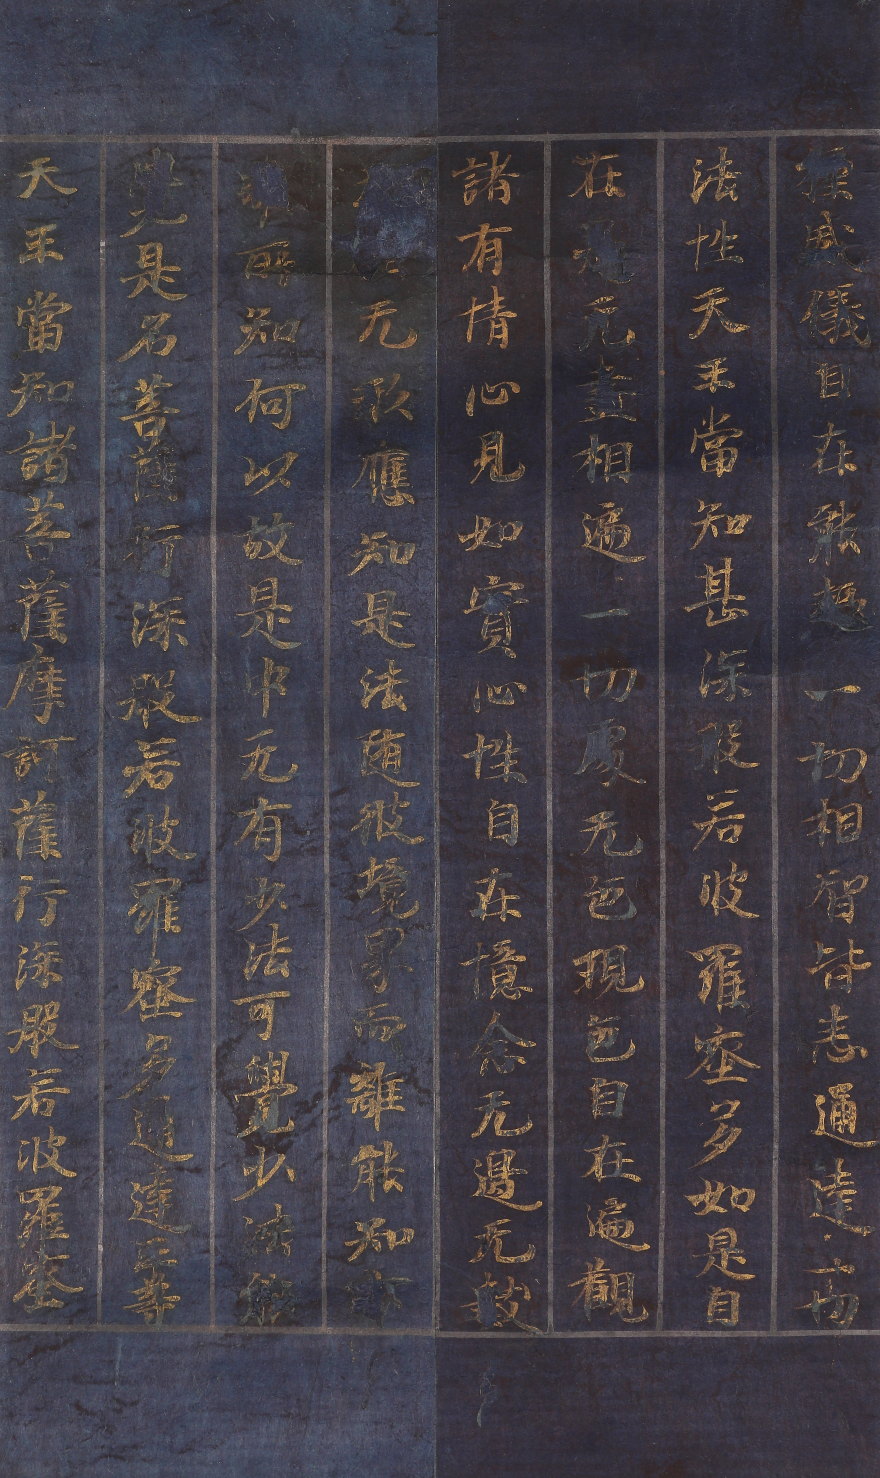 種威儀自在能趣一切相智皆悉通達一切
法性天王當知甚深般若波羅蜜多如是自
在是无盡相遍一切處无色現色自在遍觀
諸有情心見如實心性自在憶念无邊无數
无取應知是法隨彼境界而難能知
所知何以故是中无有少法可覺少法能
是名菩薩行深般若波羅蜜多通達平等
天王當知諸菩薩摩訶薩行深般若波羅蜜